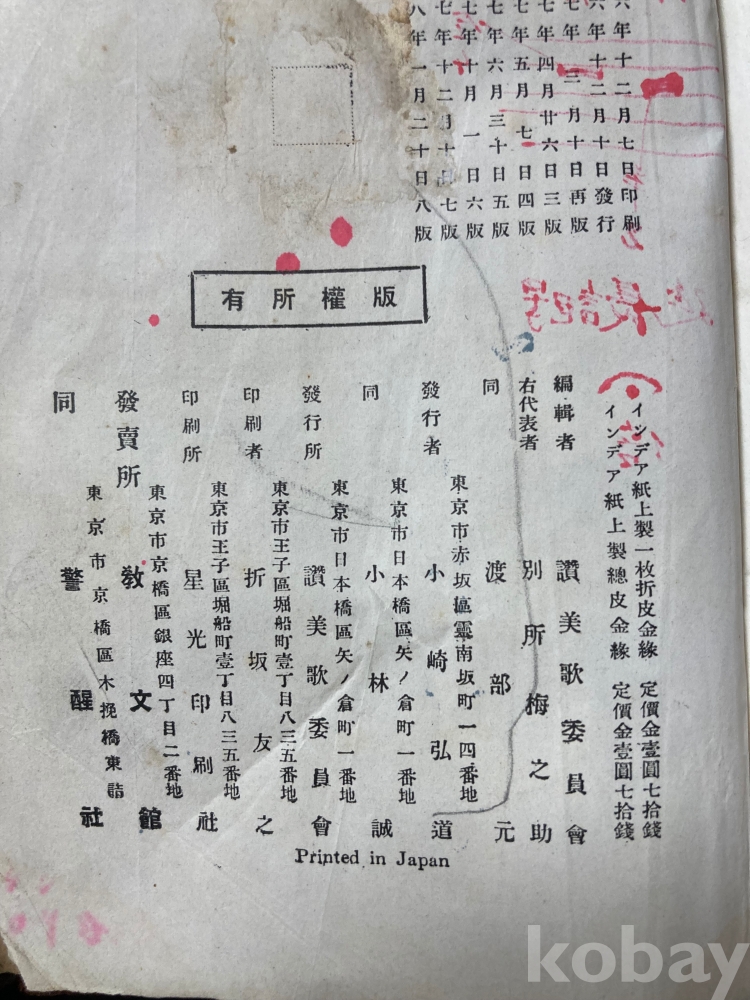 六年十二月七日印刷
六年十二月十日發行
七年三月十日再版
七年四月廿六日三版
七年五月七日四版
七年六月三十日五版
七年十月一日六版
七年十二月十日七版
八年一月二十日八版
版權所有
インデア紙上製一枚折皮金緣 定價金壹圓七拾錢
インデア紙上製總皮金緣 定價金壹圓七拾錢
編輯者 讚美歌委員會
右代表者 別所梅之助
同 渡部元
東京市赤坂區靈南坂町一四番地
發行者 小崎弘道
東京市日本橋區矢ノ倉町一番地
同 小林誠
東京市日本橋區矢ノ倉町一番地
發行所 讚美歌委員會
東京市王子區堀船町壹丁目八三五番地
印刷者 折坂友之
東京市王子區堀船町壹丁目八三五番地
印刷所 星光印刷社
東京市京橋區銀座四丁目二番地
發賣所 敎文館
東京市京橋區木挽橋東詰
同 警醒社
Printed in Japan
kobay